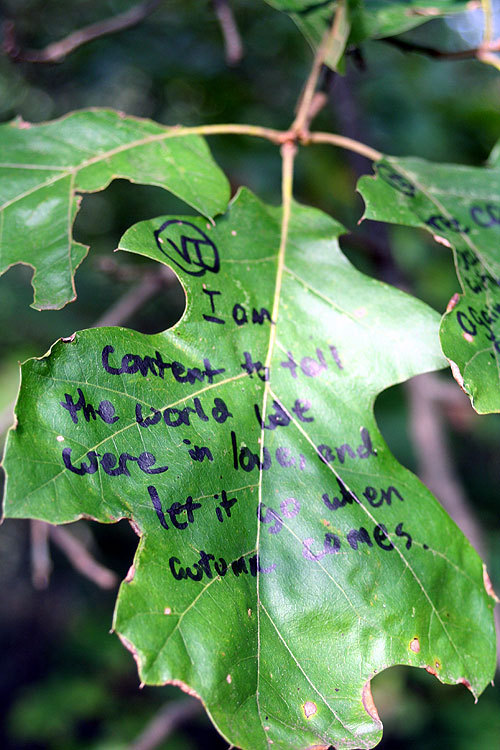 VI
I am
content to tell
the world we
were in love, and
let it go when
autumn comes.
again